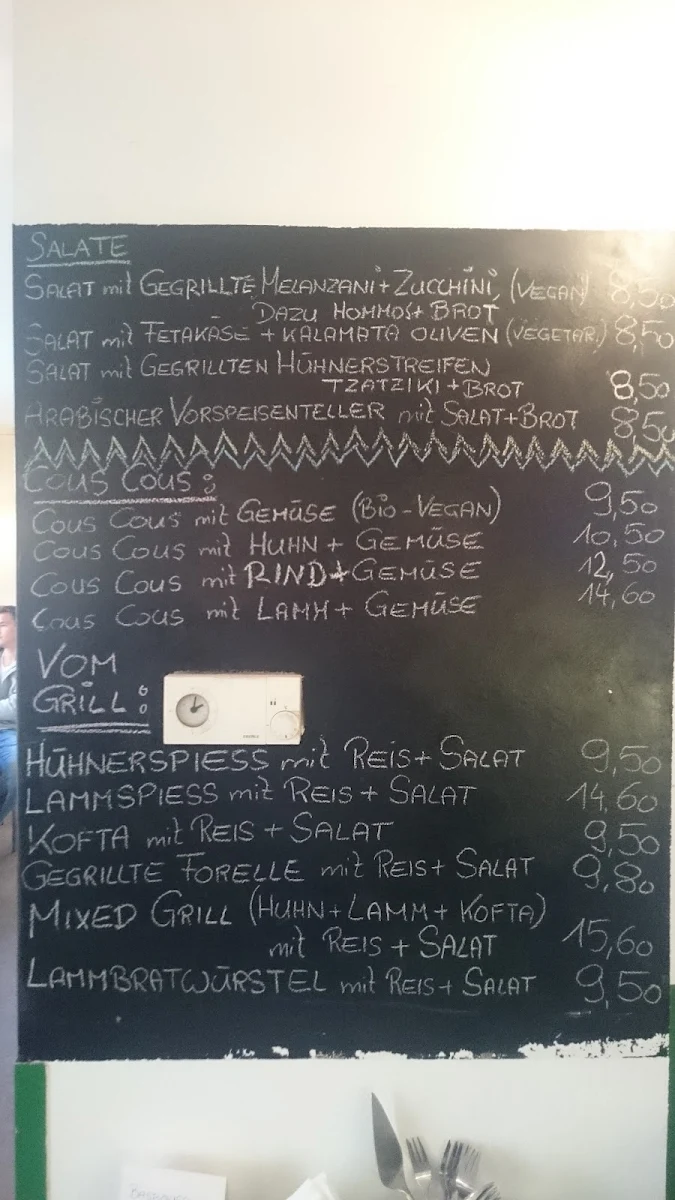 SALATE
SALAT mit GEGRILLTE MELANZANI + ZUCCHINI, (VEGAN) 8,50
DAZU HOMMOS + BROT
SALAT mit FETAKÄSE + KALAMATA OLIVEN (VEGETAR.) 8,50
SALAT mit GEGRILLTEN HÜHNERSTREIFEN
TZATZIKI + BROT 8,50
ARABISCHER VORSPEISENTELLER mit SALAT + BROT 8,50
COUS COUS:
COUS COUS mit GEMÜSE (BIO-VEGAN) 9,50
COUS COUS mit HUHN + GEMÜSE 10,50
COUS COUS mit RIND + GEMÜSE 12,50
COUS COUS mit LAMM + GEMÜSE 14,60
VOM
GRILL:
HÜHNERSPIESS mit REIS + SALAT 9,50
LAMMSPIESS mit REIS + SALAT 14,60
KOFTA mit REIS + SALAT 9,50
GEGRILLTE FORELLE mit REIS + SALAT 9,80
MIXED GRILL (HUHN + LAMM + KOFTA)
mit REIS + SALAT 15,60
LAMMBRATWÜRSTEL mit REIS + SALAT 9,50